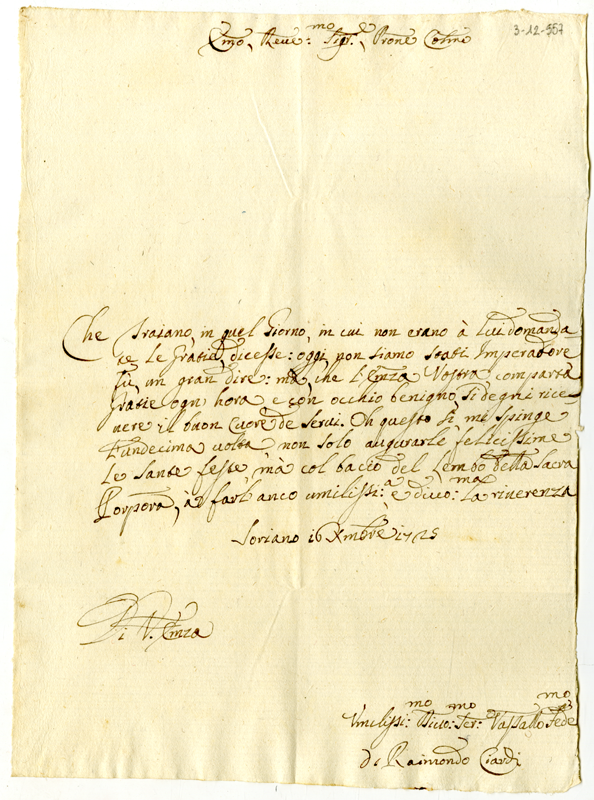 3-12-557
Emo, Reue:mo Sigr.e, Prone Colmo
Che Traiano, in quel Giorno, in cui non erano à Lui domanda-
te le Gratie, dicesse: oggi non siamo stati Imperadore
fù un gran dire: mà, che l'Emza Vostra comparta
Gratie ogn' hora e con occhio benigno, si degni rice-
uere il buon Cuore de Serui. Oh questo sì, mi spinge
l'undecima volta, non solo augurarle felicissime
le sante feste, mà col baccio del Lembo della Sacra
Porpora, à farl' anco umilissi:a e diuo:ma la riuerenza
Soriano 16 Xmbre 1725
Di V. Emza
Vmilissi:mo Diuo:mo Ser: Vassallo Fede mo
di Raimondo Ciardi